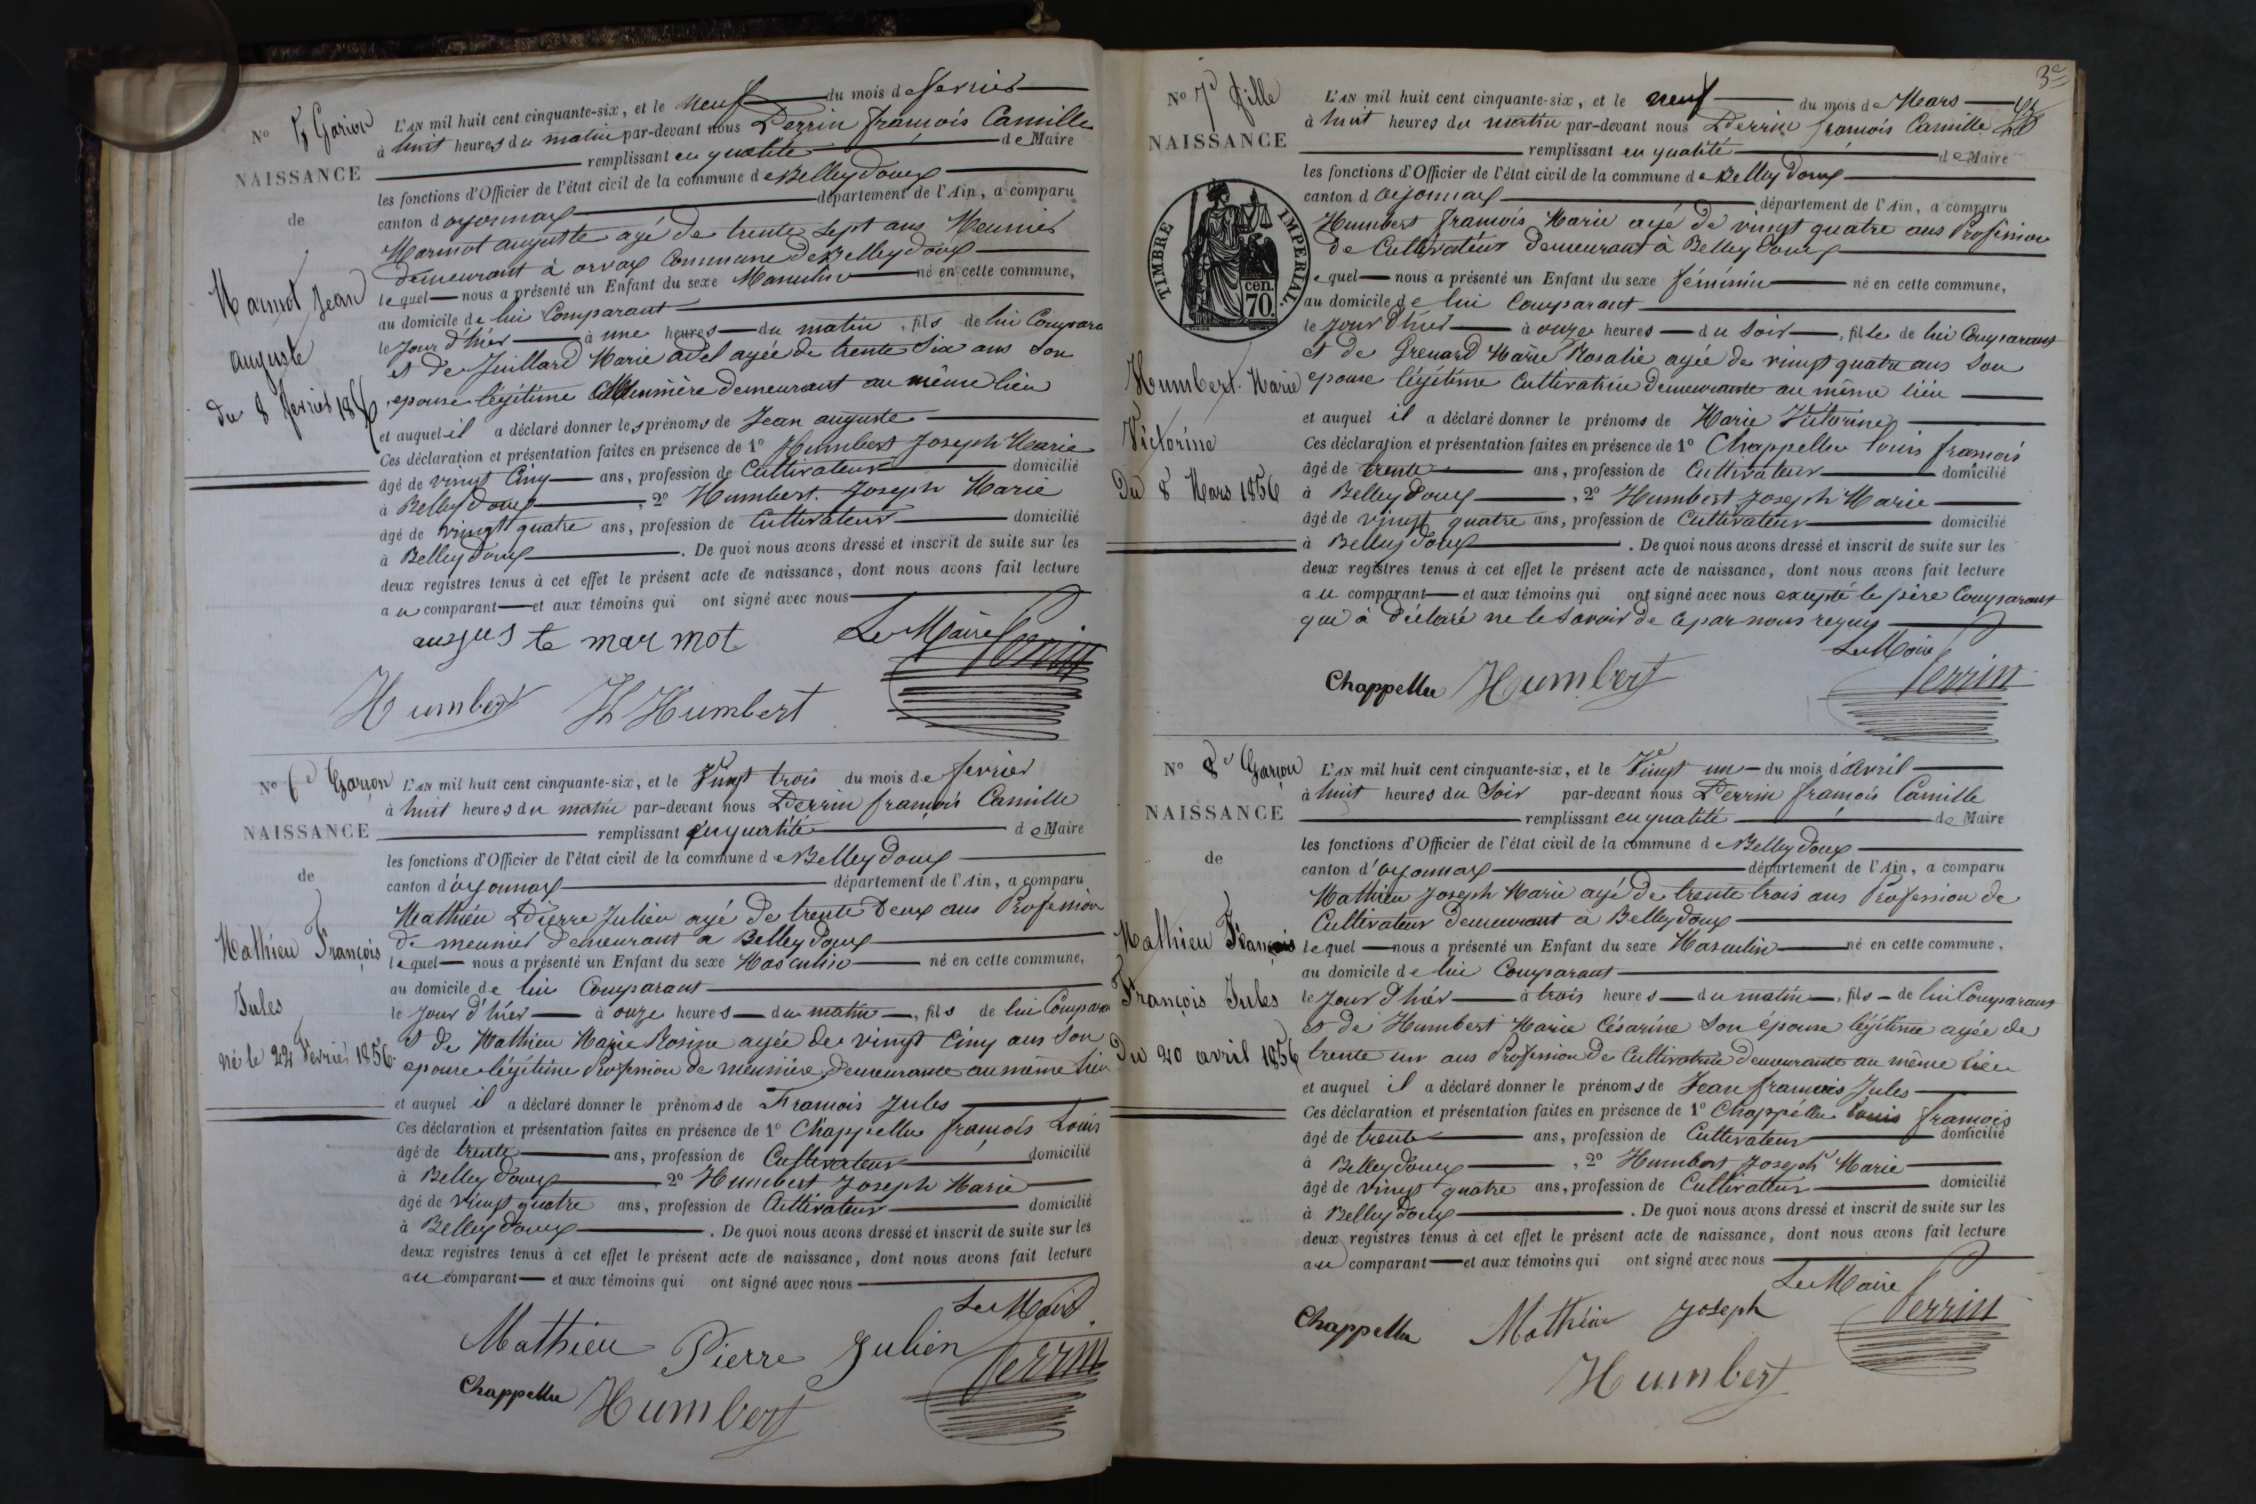 No 5 Garçon
NAISSANCE
de
Marmot Jean
auguste
du 8 fevrier 1856
L'AN mil huit cent cinquante-six, et le neuf du mois de fevrier
à huit heures du matin par-devant nous Perrin françois Camille
remplissant en qualité de Maire
les fonctions d'Officier de l'état civil de la commune de Belleydoux
canton d oyonnax département de l'Ain, a comparu
Marmot auguste agé de trente sept ans Meunier
demeurant à orvax Commune de Belleydoux
lequel nous a présenté un Enfant du sexe Masculin né en cette commune,
au domicile de lui Comparant
le jour d'hier à une heures du matin, fils de lui Compara
et de Juillard Marie adel agée de trente Six ans Son
epouse légitime Meunière demeurant au même lieu
et auquel il a déclaré donner les prénoms de Jean auguste
Ces déclaration et présentation faites en présence de 1o Humbert Joseph Marie
âgé de vingt Cinq ans, profession de Cultivateur domicilié
à Belleydoux, 2o Humbert Joseph Marie
âgé de vingt quatre ans, profession de Cultivateur domicilié
à Belleydoux. De quoi nous avons dressé et inscrit de suite sur les
deux registres tenus à cet effet le présent acte de naissance, dont nous avons fait lecture
au comparant et aux témoins qui ont signé avec nous
auguste marmot Le Maire Perrin
Humbert Humbert
No 6e Garçon
NAISSANCE
de
Mathieu François
Jules
né le 22 Fevrier 1856
L'AN mil huit cent cinquante-six, et le Vingt trois du mois de fevrier
à huit heures du matin par-devant nous Perrin françois Camille
remplissant en qualité de Maire
les fonctions d'Officier de l'état civil de la commune de Belleydoux
canton d'oyonnax département de l'Ain, a comparu
Mathieu Pierre Julien agé de trente Deux ans Profession
de meunier demeurant a Belleydoux
lequel nous a présenté un Enfant du sexe Masculin né en cette commune,
au domicile de lui Comparant
le jour d'hier à onze heures du matin, fils de lui Comparan
et de Mathieu Marie Rosine agée de vingt Cinq ans Son
epouse légitime Profession de meunière demeurante au même lieu
et auquel il a déclaré donner le prénoms de François Jules
Ces déclaration et présentation faites en présence de 1o Chappellu françois Louis
âgé de trente ans, profession de Cultivateur domicilié
à Belleydoux 2o Humbert Joseph Marie
âgé de vingt quatre ans, profession de Cultivateur domicilié
à Belleydoux. De quoi nous avons dressé et inscrit de suite sur les
deux registres tenus à cet effet le présent acte de naissance, dont nous avons fait lecture
au comparant et aux témoins qui ont signé avec nous
Le Maire
Mathieu Pierre Julien Perrin
Chappellu Humbert
3e
No 7e fille
NAISSANCE
TIMBRE IMPERIAL.
cen. 70.
Humbert Marie
Victorine
Du 8 Mars 1856
L'AN mil huit cent cinquante-six, et le neuf du mois de Mars
à huit heures du matin par-devant nous Perrin françois Camille
remplissant en qualité de Maire
les fonctions d'Officier de l'état civil de la commune de Belleydoux
canton d oyonnax département de l'Ain, a comparu
Humbert françois Marie agé de vingt quatre ans Profession
de Cultivateur demeurant à Belleydoux
lequel nous a présenté un Enfant du sexe féminin né en cette commune,
au domicile de lui Comparant
le jour d'hier à onze heures du Soir, fille de lui Comparant
et de Grenard Marie Rosalie agée de vingt quatre ans Son
epouse légitime Cultivatrice demeurante au même lieu
et auquel il a déclaré donner le prénoms de Marie Victorine
Ces déclaration et présentation faites en présence de 1o Chappellu Louis françois
âgé de trente ans, profession de Cultivateur domicilié
à Belleydoux, 2o Humbert Joseph Marie
âgé de vingt quatre ans, profession de Cultivateur domicilié
à Belleydoux. De quoi nous avons dressé et inscrit de suite sur les
deux registres tenus à cet effet le présent acte de naissance, dont nous avons fait lecture
au comparant et aux témoins qui ont signé avec nous excepté le père Comparant
qui à déclaré ne le Savoir de ce par nous requis
Le Maire
Chappellu Humbert Perrin
No 8e Garçon
NAISSANCE
de
Mathieu Jean
François Jules
Du 20 avril 1856
L'AN mil huit cent cinquante-six, et le Vingt un du mois d'Avril
à huit heures du Soir par-devant nous Perrin françois Camille
remplissant en qualité de Maire
les fonctions d'Officier de l'état civil de la commune de Belleydoux
canton d'oyonnax département de l'Ain, a comparu
Mathieu Joseph Marie agé de trente trois ans Profession de
Cultivateur demeurant à Belleydoux
lequel nous a présenté un Enfant du sexe Masculin né en cette commune,
au domicile de lui Comparant
le jour d'hier à trois heures du matin, fils de lui Comparant
et de Humbert Marie Césarine Son épouse légitime agée de
trente un ans Profession de Cultivatrice demeurante au même lieu
et auquel il a déclaré donner le prénoms de Jean françois Jules
Ces déclaration et présentation faites en présence de 1o Chappellu Louis françois
âgé de trente ans, profession de Cultivateur domicilié
à Belleydoux, 2o Humbert Joseph Marie
âgé de vingt quatre ans, profession de Cultivateur domicilié
à Belleydoux. De quoi nous avons dressé et inscrit de suite sur les
deux registres tenus à cet effet le présent acte de naissance, dont nous avons fait lecture
au comparant et aux témoins qui ont signé avec nous
Le Maire
Chappellu Mathieu Joseph Perrin
Humbert